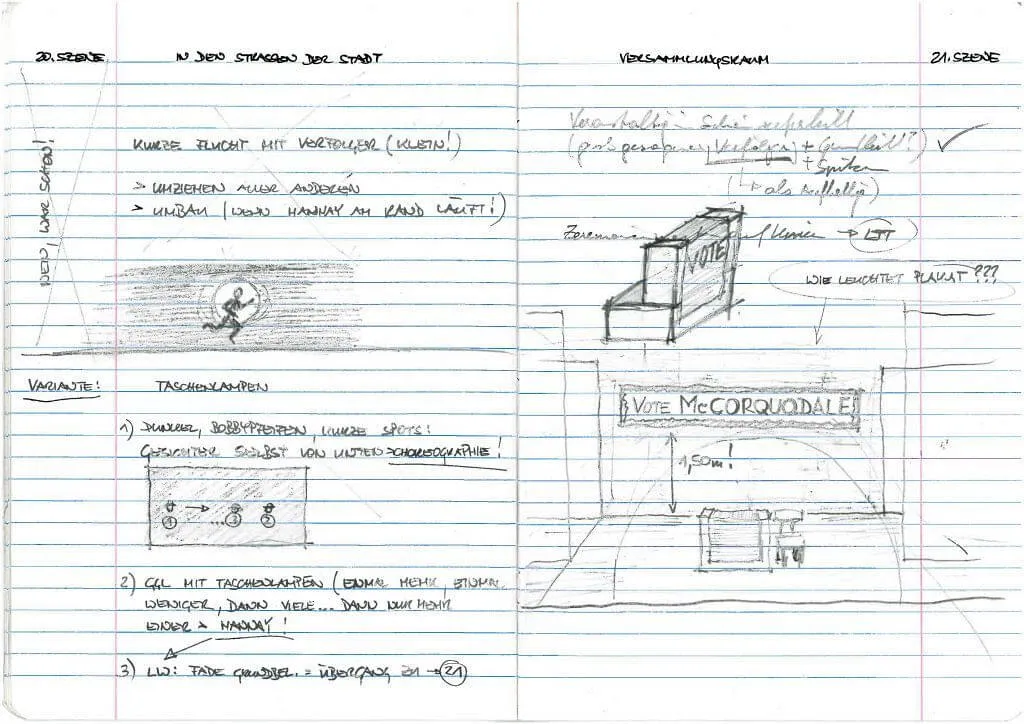 20. SZENE
IN DEN STRASSEN DER STADT
NEIN, WAR SCHON!
KURZE FLUCHT MIT VERFOLGER (KLEIN!)
> UMZIEHEN ALLER ANDEREN
> UMBAU (WENN HANNAY AM RAND LÄUFT!)
VARIANTE: TASCHENLAMPEN
1) DUNKEL, BOBBYPFEIFEN, KURZE SPOTS!
GESICHTER SELBST VON UNTEN > CHOREOGRAPHIE!
1 → ... 3 2
2) GGL MIT TASCHENLAMPEN (EINMAL MEHR, EINMAL
WENIGER, DANN VIELE... DANN NUR MEHR
EINER > HANNAY!
3) LW: FADE GRUNDBEL. = ÜBERGANG ZU → 21
VERSAMMLUNGSRAUM
21. SZENE
(+
+
(↳ als
→ LTT
VOTE
WIE LEUCHTET PLAKAT???
VOTE McCORQUODALE
1,50m!